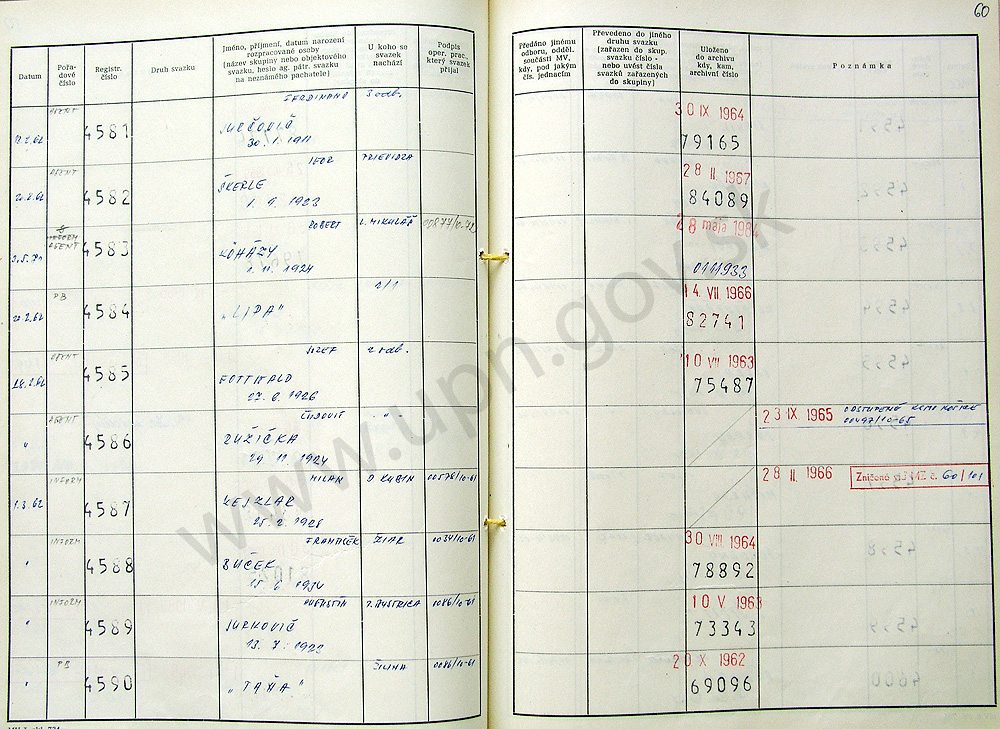 60
Datum
Pořa-
dové
číslo
Registr.
číslo
Druh svazku
Jméno, příjmení, datum narození
rozpracované osoby
(název skupiny nebo objektového
svazku, heslo ag. pátr. svazku
na neznámého pachatele)
U koho se
svazek
nachází
Podpis
oper. prac.,
který svazek
přijal
Předáno jinému
odboru, odděl.
součásti MV,
kdy, pod jakým
čís. jednacím
Převedeno do jiného
druhu svazku
(zařazen do skup.
svazku číslo -
nebo uvést čísla
svazků zařazených
do skupiny)
Uloženo
do archivu
kdy, kam,
archivní číslo
Poznámka
AGENT
4581
FERDINAND
30. 1. 1911
3 odb.
30 IX 1964
79165
AGENT
4582
IGOR
ŠKERLE
1. 9. 1923
PRIEVIDZA
28 II. 1967
84089
AGENT
4583
ROBERT
KÖHÁZY
1. 11. 1924
L. MIKULÁŠ
00877/10-72
28 mája 1984
0111933
PB
4584
„LIPA"
2/1
14. VII 1966
82741
AGENT
4585
JOZEF
GOTTWALD
27. 6. 1926
2 odb.
10 VII 1963
75487
AGENT
"
4586
ĽUDOVIT
RUŽIČKA
29. 11. 1924
- " -
23 IX 1965
00497/10-65
INFORM
1.3.62
4587
MILAN
KEJZLAR
25. 2. 1928
D. KUBIN
00578/10-61
28 II. 1966
Zničené č. 60/101
INFORM
"
4588
FRANTIŠEK
BUČEK
ŽIAR
0034/10-61
30 VIII 1964
78892
INFORM
"
4589
AUGUSTÍN
JURKOVIČ
13. 7. 1923
P. BYSTRICA
0086/10-61
10 V 1963
73343
PB
"
4590
„TAŇA"
ŽILINA
0086/10-61
20 X 1962
69096
www.upn.gov.sk